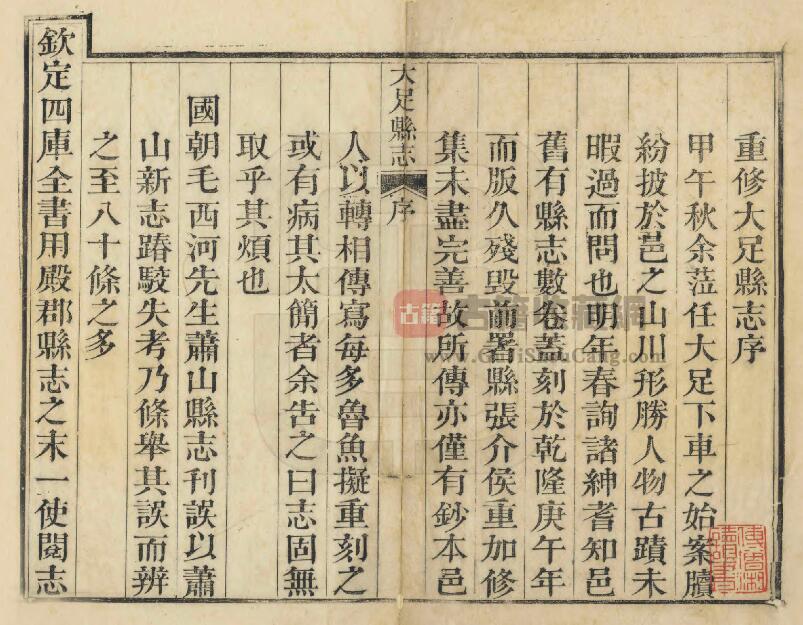 重修大足縣志序
甲午秋余蒞任大足下車之始案牘
紛披於邑之山川形勝人物古蹟未
暇過而問也明年春詢諸紳耆知邑
舊有縣志數卷蓋刻於乾隆庚午年
而版久殘毀前署縣張介侯重加修
集未盡完善故所傳亦僅有鈔本邑
大足縣志 序
人以轉相傳寫每多魯魚擬重刻之
或有病其太簡者余告之曰志固無
取乎其煩也
國朝毛西河先生蕭山縣志刊誤以蕭
山新志踳駮失考乃條舉其誤而辨
之至八十條之多
欽定四庫全書用殿郡縣志之末一使閱志
古籍
古籍收藏網
www.GuJiShuCang.com